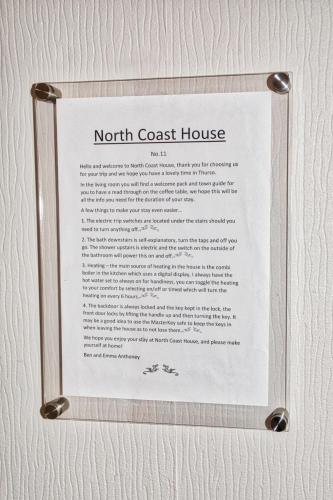 North Coast House
No.11
Hello and welcome to North Coast House, thank you for choosing us
for your trip and we hope you have a lovely time in Thurso.
In the living room you will find a welcome pack and town guide for
you to have a read through on the coffee table, we hope this will be
all the info you need for the duration of your stay.
A few things to make your stay even easier...
1. The electric trip switches are located under the stairs should you
need to turn anything off.
2. The bath downstairs is self-explanatory, turn the taps and off you
go. The shower upstairs is electric and the switch on the outside of
the bathroom will power this on and off.
3. Heating – the main source of heating in the house is the combi
boiler in the kitchen which uses a digital display. I always have the
hot water set to always on for handiness, you can toggle the heating
to your comfort by selecting on/off or timed which will turn the
heating on every 6 hours.
4. The backdoor is always locked and the key kept in the lock, the
front door locks by lifting the handle up and then turning the key. It
may be a good idea to use the MasterKey safe to keep the keys in
when leaving the house as to not lose them.
We hope you enjoy your stay at North Coast House, and please make
yourself at home!
Ben and Emma Anthoney